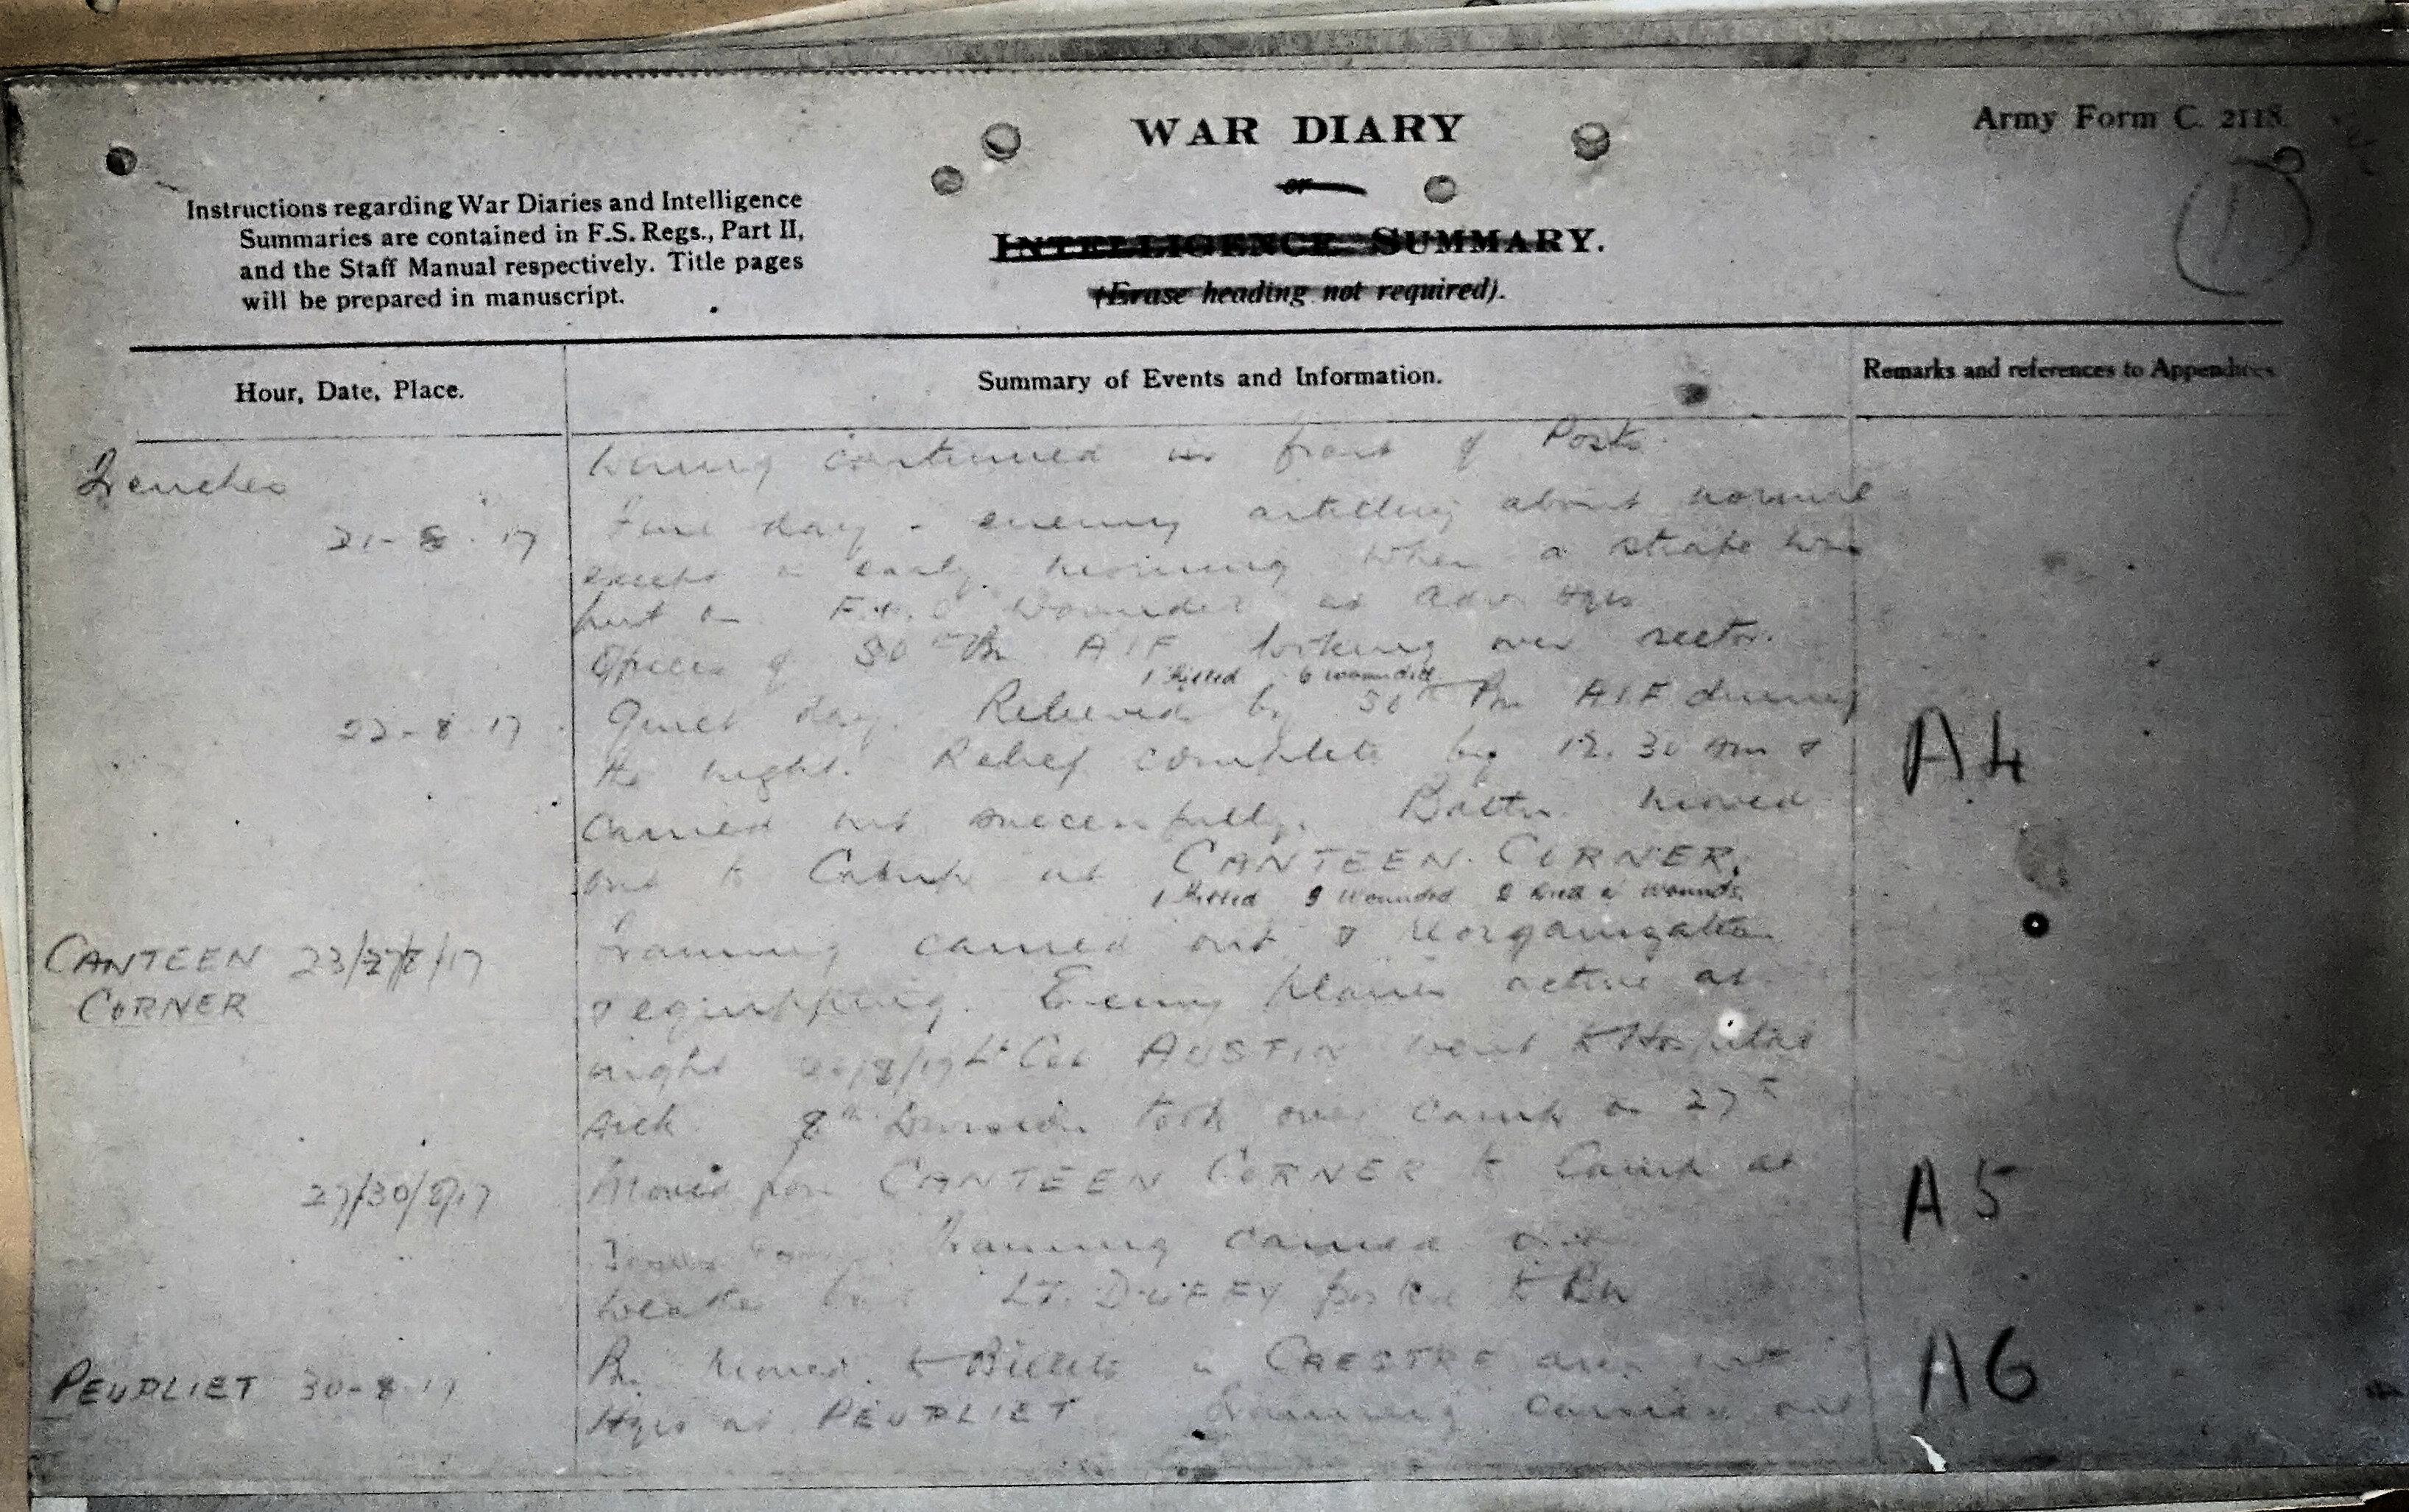 Army Form C. 2118.
WAR DIARY
or
INTELLIGENCE SUMMARY.
(Erase heading not required).
Instructions regarding War Diaries and Intelligence
Summaries are contained in F.S. Regs., Part II,
and the Staff Manual respectively. Title pages
will be prepared in manuscript.
1
Hour, Date, Place.
Summary of Events and Information.
Remarks and references to Appendices
Trenches
wiring continued in front of Posts.
21-8-17
Fine day - enemy artillery about normal
except in early morning when a strafe was
put on F.+.O wounded at Adv Hqrs
Officers of 50th Bn AIF looking over sector.
1 killed 6 wounded
22-8-17
Quiet day. Relieved by 50th Bn AIF during
the night. Relief complete by 12.30 am &
A4
carried out successfully. Battn moved
out to Camp at CANTEEN CORNER.
1 killed 9 wounded 2 died of wounds
CANTEEN 23/27/8/17
CORNER
Training carried out & reorganization
& equipping. Enemy planes active at
night Lt Col AUSTIN went to Hospital
sick. 8th Division took over camp on 27th
27/30/8/17
Moved from CANTEEN CORNER to Camp at
A5
Training carried out
weather LT. DUFFY posted to Bn
PEUPLIET 30-8-17
Bn moved to Billets in CAESTRE area with
A6
Hqrs at PEUPLIET Training carried out